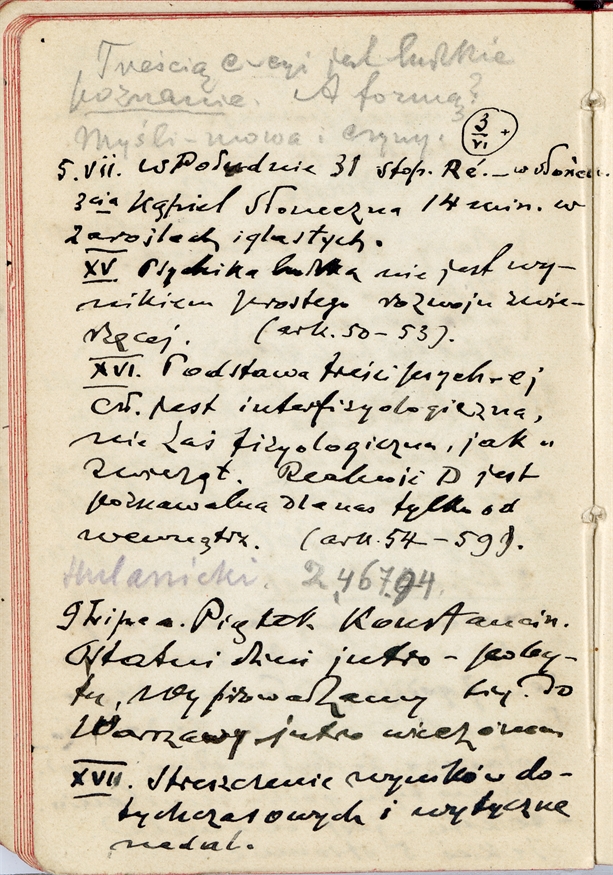 Treścią e jest ludzkie
poznanie. A formą?
Myśli - mowa i czyny.
3/VI +
5. VII. w Południe 31 stop. Ré. – w słońcu.
3cia Kąpiel słoneczna 14 min. w
zaroślach iglastych.
XV Psychika ludzka nie jest wy-
nikiem prostego rozwoju zwie-
rzęcej. (ark. 50 – 53).
XVI. Podstawa treści psych-ej
cz. jest interfizyologiczna,
nie zaś fizyologiczna, jak u
zwierząt. jest
poznawalna dla nas tylko od
wewnątrz. (ark. 54 – 59).
Hulanicki. 2,467.94
9 Lipca. Piątek Konstancin.
Ostatni dzień jutro – poby-
tu, wyprowadzamy się do
Warszawy jutro wieczorem
XVII. Streszczenie wyników do-
tychczasowych i wytyczne
nadal.